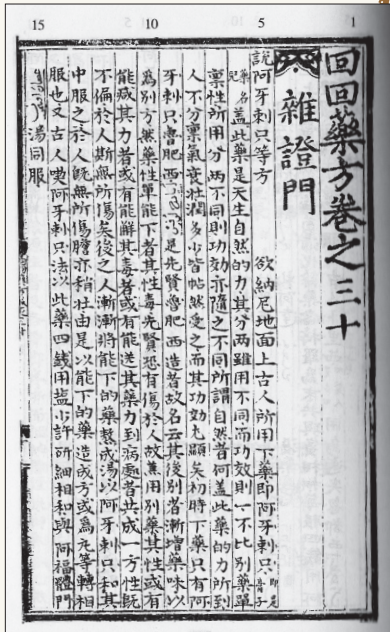 15 10 5 1
回回藥方卷之三十
雜證門
說阿牙剌只等方 欲納尼地面上古人所用下藥即阿牙剌只
藥名蓋此藥是天生自然的力其分兩雖用不同而功效則一不比別藥單
稟性所用分兩不同則功効亦隨之不同所謂自然者何蓋此藥的力所到
人不分稟氣衰壯潤多少皆帖然受之而其功効尤顯矣初時下藥只有阿
牙剌只魯肥西 是先賢魯肥西造者故名云其後別者漸增藥味以
為別方然藥性單能下者其性毒先賢恐有傷於人故兼用別藥其性或有
能減其力者或有能解其毒者或有能送其藥力到病處者共成一方性旣
不偏於人斯無所傷矣後之人漸漸將能下的藥熬成湯以阿牙剌只和其
中服之於人旣無所傷膽亦稍壯由是以能下的藥造成方或為丸等轉相
服也又古人嘬阿牙剌只法以此藥四錢用塩少許研細相和與阿福體門
湯同服